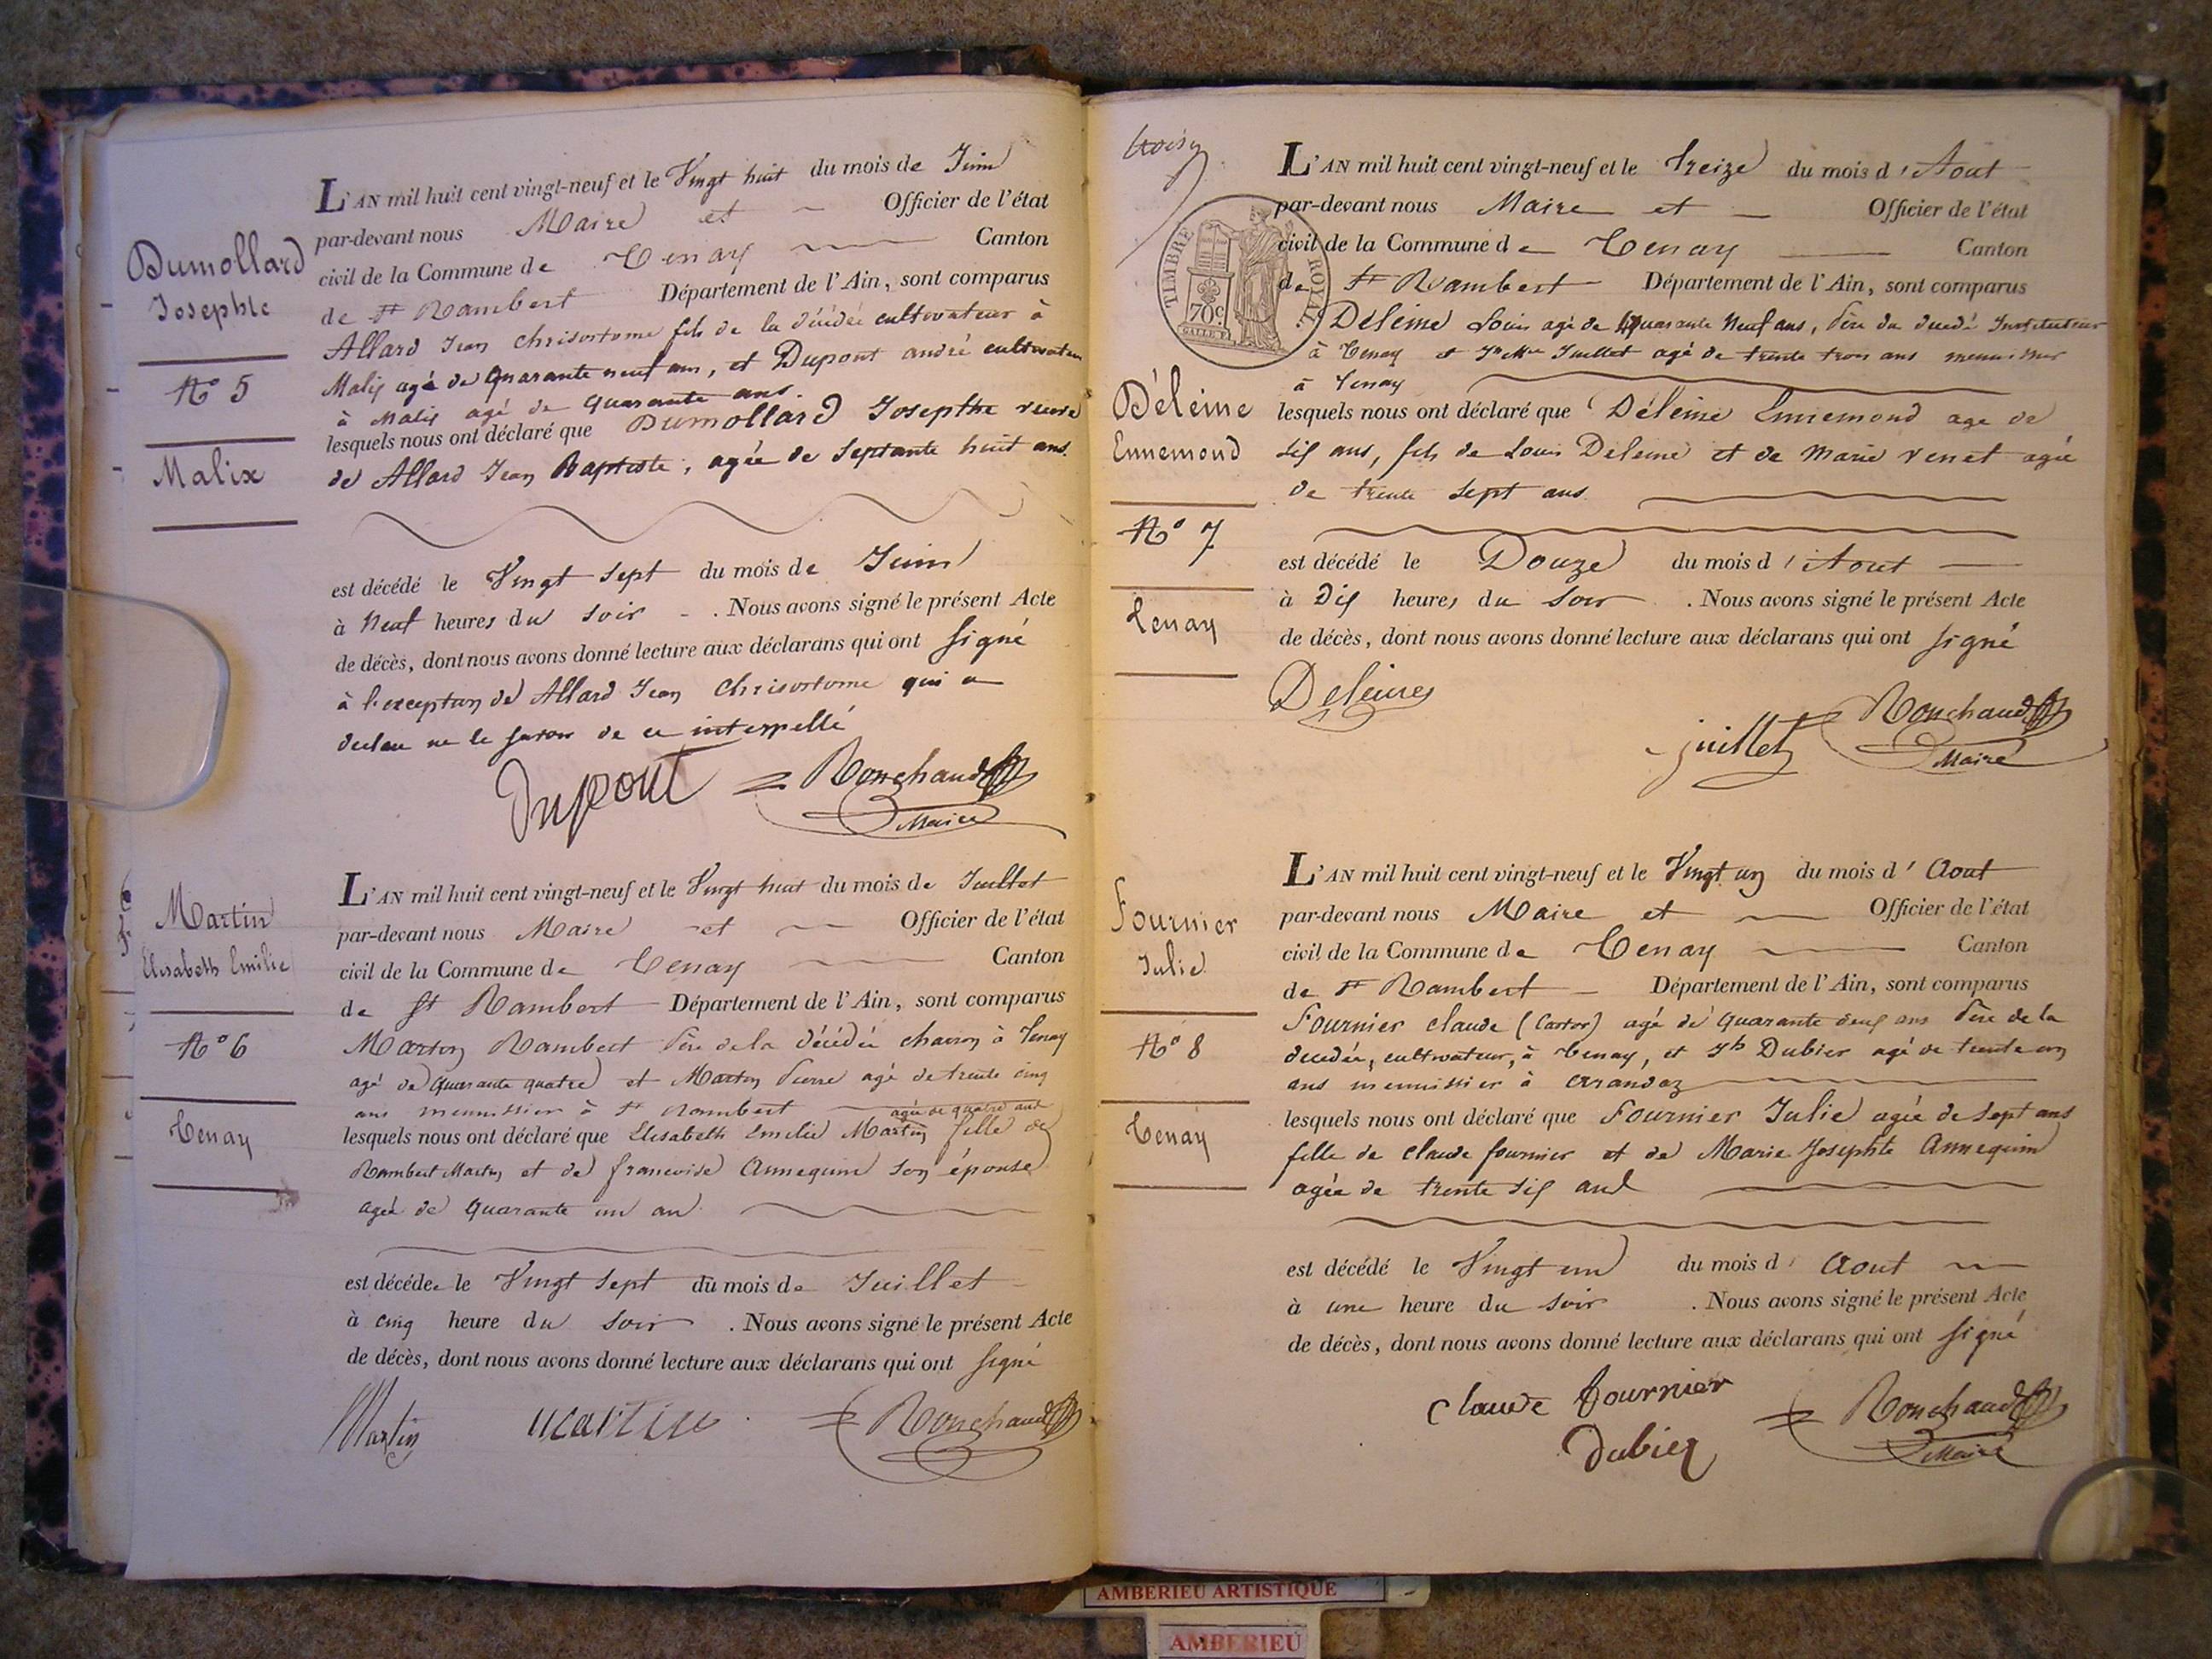 Dumollard
Josephte
N° 5
Malix
L'AN mil huit cent vingt-neuf et le Vingt huit du mois de Juin
par-devant nous Maire et Officier de l'état
civil de la Commune de Tenay Canton
de St Rambert Département de l'Ain, sont comparus
Allard Jean Chrisostome fils de la décédée cultivateur à
Malix agé de quarante neuf ans, et Dupont andré cultivateur
à Malix agé de quarante ans.
lesquels nous ont déclaré que Dumollard Josepthe veuve
de Allard Jean Baptiste, agée de septante huit ans.
est décédé le Vingt sept du mois de Juin
à Neuf heures du soir . Nous avons signé le présent Acte
de décès, dont nous avons donné lecture aux déclarans qui ont signé
à l'exception de Allard Jean Chrisostome qui a
declaré ne le savoir de ce interpellé
Dupont Ronchaud
Maire
Martin
Elisabeth Emilie
N° 6
Tenay
L'AN mil huit cent vingt-neuf et le Vingt huit du mois de Juillet
par-devant nous Maire et Officier de l'état
civil de la Commune de Tenay Canton
de St Rambert Département de l'Ain, sont comparus
Martin Rambert Père de la décédée charron à Tenay
agé de quarante quatre et Martin Pierre agé de trente cinq
ans menuissier à St Rambert agée de quatre ans
lesquels nous ont déclaré que Elisabeth Emilie Martin fille de
Rambert Martin et de francoise Annequin son épouse
agée de quarante un an
est décédée le Vingt sept du mois de Juillet
à cinq heure du soir . Nous avons signé le présent Acte
de décès, dont nous avons donné lecture aux déclarans qui ont signé
Martin Martin Ronchaud
TIMBRE ROYAL.
70c
Déléine
Ennemond
N° 7
Tenay
L'AN mil huit cent vingt-neuf et le treize du mois d'Aout
par-devant nous Maire et Officier de l'état
civil de la Commune de Tenay Canton
de St Rambert Département de l'Ain, sont comparus
Déléine Louis agé de quarante neuf ans, Père du decedé Instituteur
à Tenay et Juillet agé de trente trois ans menuisier
à Tenay
lesquels nous ont déclaré que Déléine Ennemond age de
six ans, fils de Louis Deleine et de Marie venet agée
de trente sept ans
est décédé le Douze du mois d'Aout
à Dix heures du soir . Nous avons signé le présent Acte
de décès, dont nous avons donné lecture aux déclarans qui ont signé
Deleines
juillet Ronchaud
Maire
Fournier
Julie
N° 8
Tenay
L'AN mil huit cent vingt-neuf et le Vingt un du mois d'Aout
par-devant nous Maire et Officier de l'état
civil de la Commune de Tenay Canton
de St Rambert Département de l'Ain, sont comparus
Fournier Claude (Castor) agé de quarante deux ans Père de la
decedée, cultivateur, à Tenay, et Jh Dubier agé de trente un
ans menuissier à arandaz
lesquels nous ont déclaré que Fournier Julie agée de sept ans
fille de Claude fournier et de Marie Josephte Annequin
agée de trente six ans
est décédé le Vingt un du mois d'Aout
à une heure du soir . Nous avons signé le présent Acte
de décès, dont nous avons donné lecture aux déclarans qui ont signé
Claude Fournier Ronchaud
Dubier Maire
AMBERIEU ARTISTIQUE
AMBERIEU